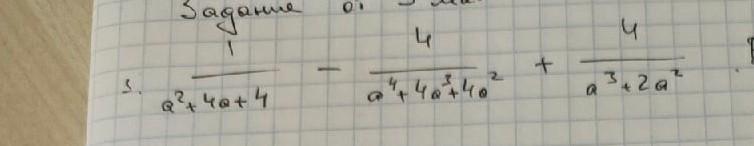 Задание
3. 1/(a²+4a+4) - 4/(a⁴+4a³+4a²) + 4/(a³+2a²).